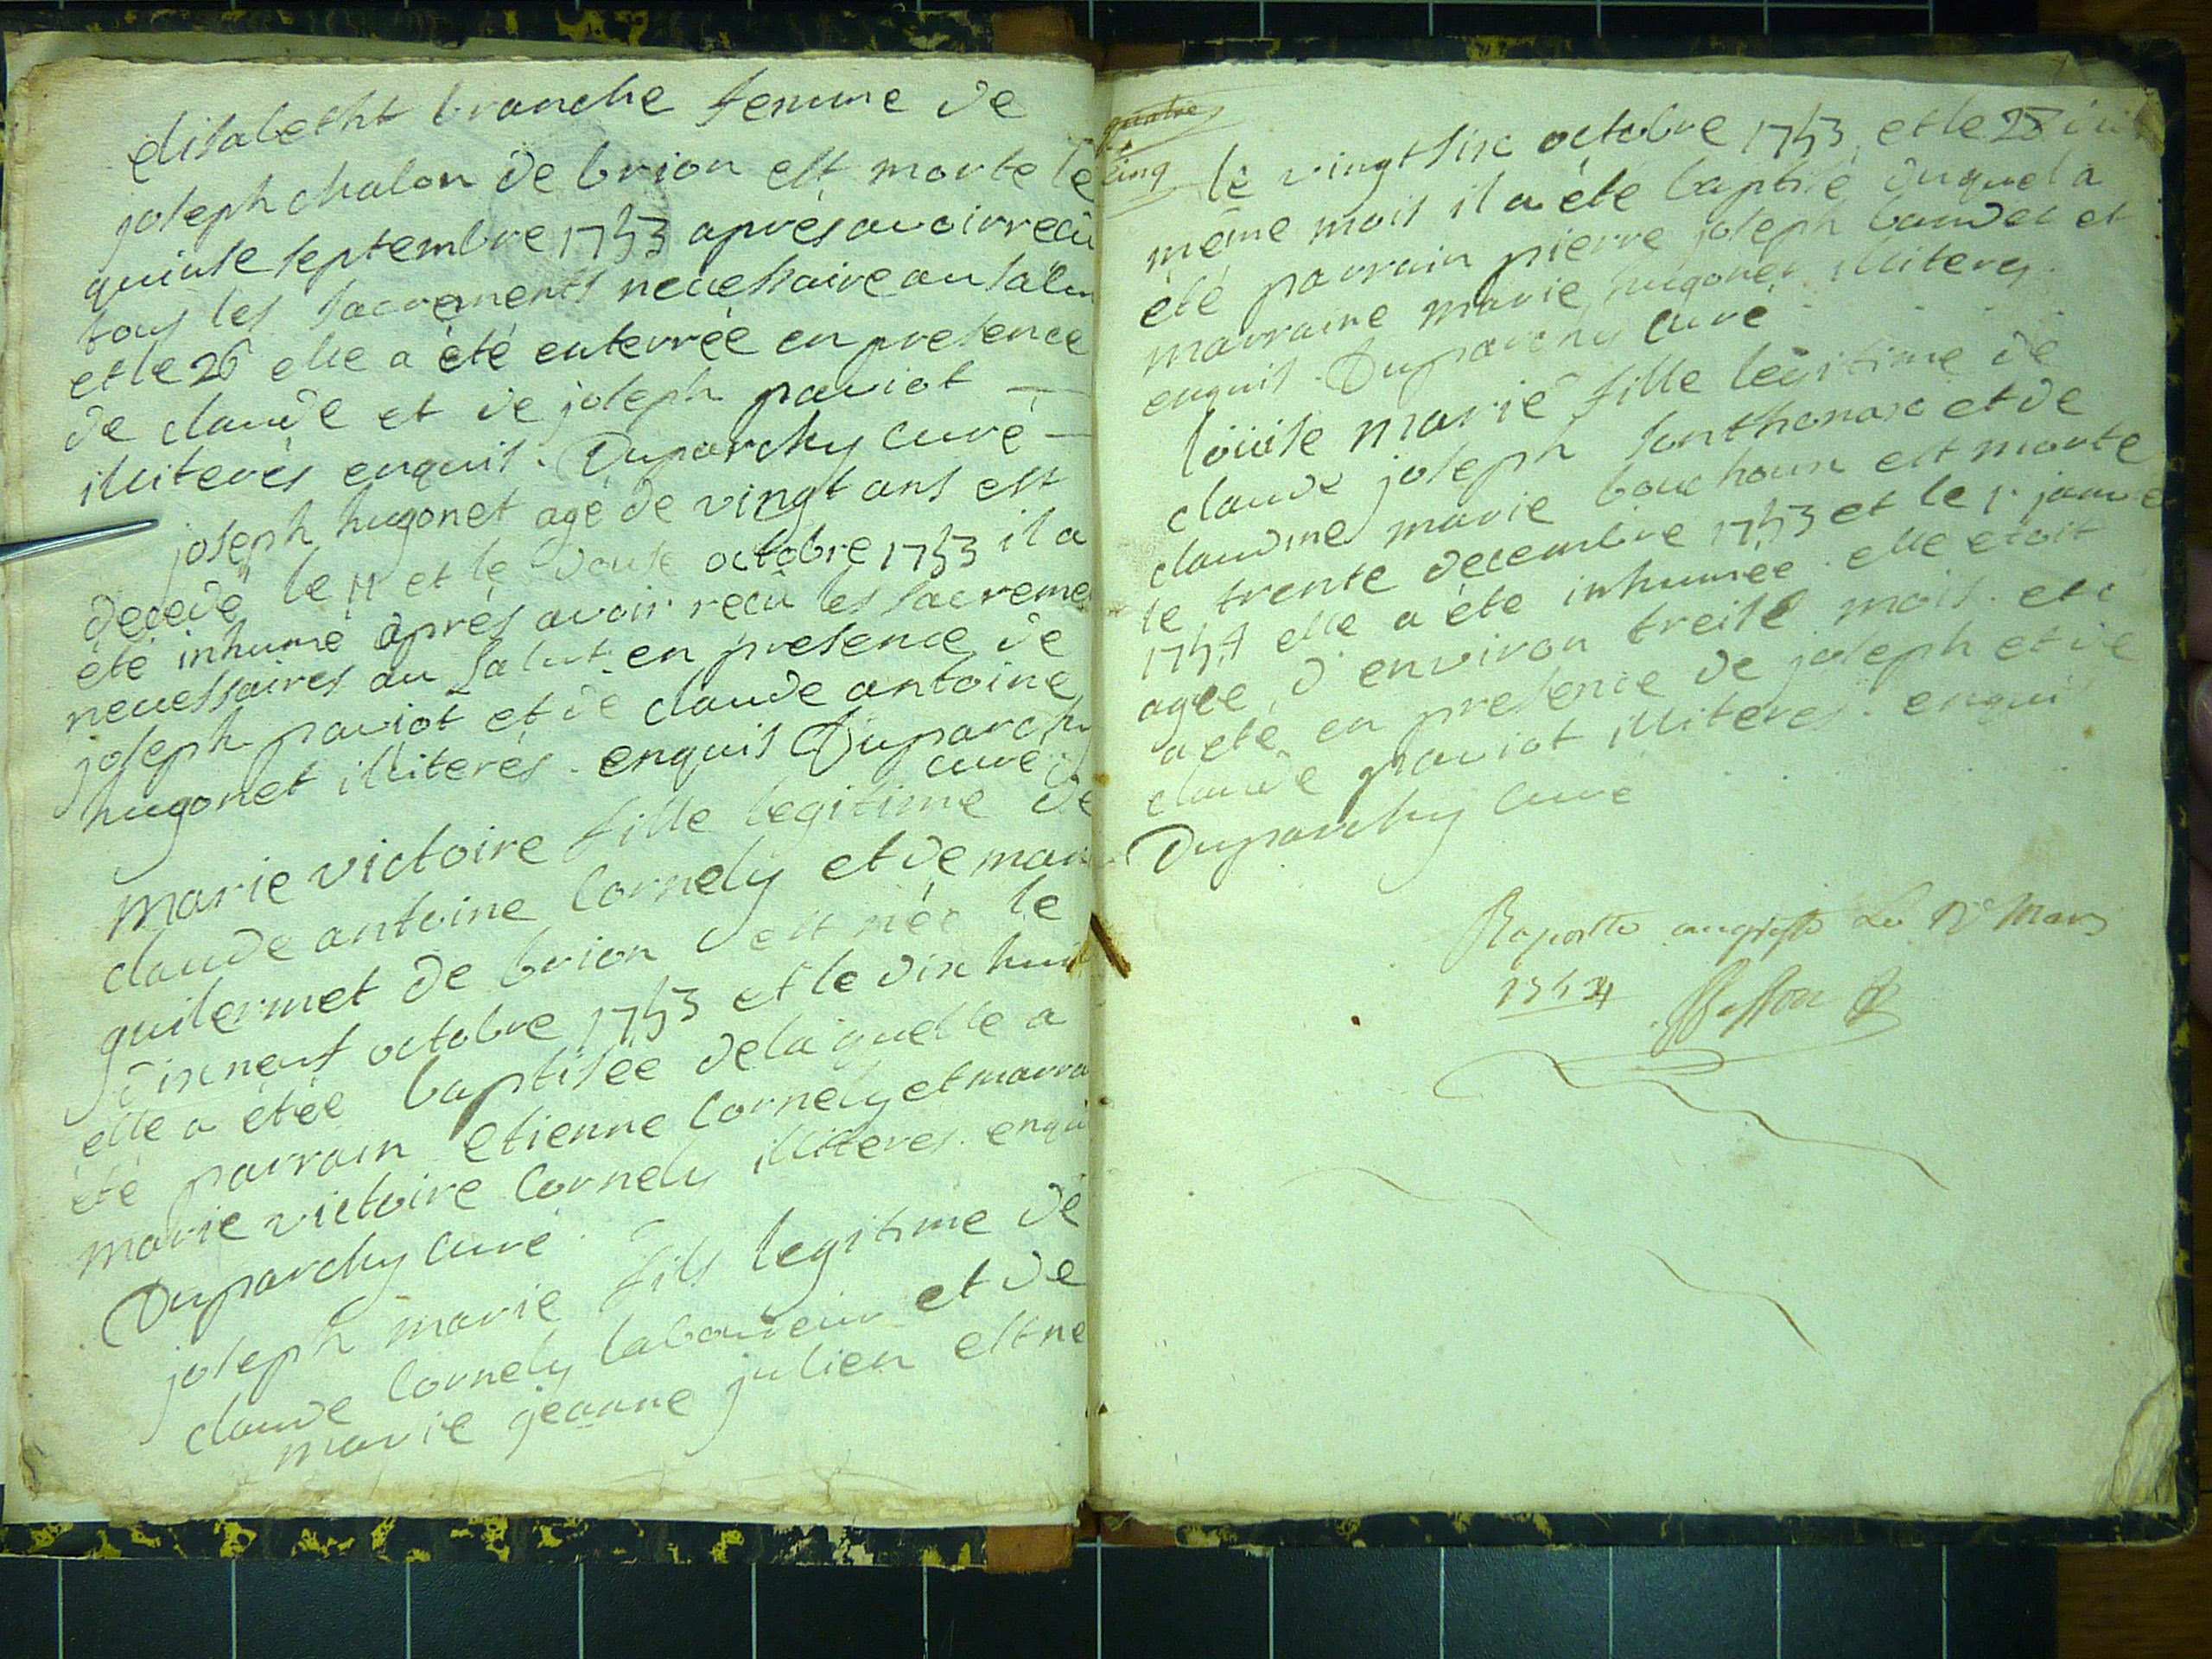 elisabetht branche femme de
joseph chalon de brion est morte le
quinse septembre 1753 après avoir recû
tous les sacrements necessaire au salu
et le 26 elle a été enterrée en presence
de claude et de joseph paviot
illiterés enquis. Duparchy curé
joseph hugonet agé de vingt ans est
decedé le 11 et le douse octobre 1753 il a
été inhumé aprés avoir recû les sacreme
necessaires au salut en presence de
joseph paviot et de claude antoine
hugonet illiterés. enquis Duparchy
curé
marie victoire fille legitime de
claude antoine Cornely et de marie
guilermet de brion est née le
dixneuf octobre 1753 et le dix huit
elle a étée baptisée de laquelle a
été parrain etienne Cornely et marra
marie victoire Cornely illiteres enqui
Duparchy curé
joseph marie fils legitime de
claude Cornely laboureur et de
marie jeanne julien est né
quatre
cinq
le vingt six octobre 1753 et le 28
même mois il a été baptisé duquel a
été parrain pierre joseph et
marraine marie hugonet illiteres
enquis. Duparchy curé
loüise marie fille legitime de
claude joseph sonthonax et de
claudine marie bouchoux est morte
le trente decembre 1753 et le 1. janvie
1754 elle a été inhumée. elle etoit
agée d'environ treise mois. etc
a été en presence de joseph et de
claude paviot illiteres. enquis
Duparchy curé
Raporté au greffe Le Mars
1754